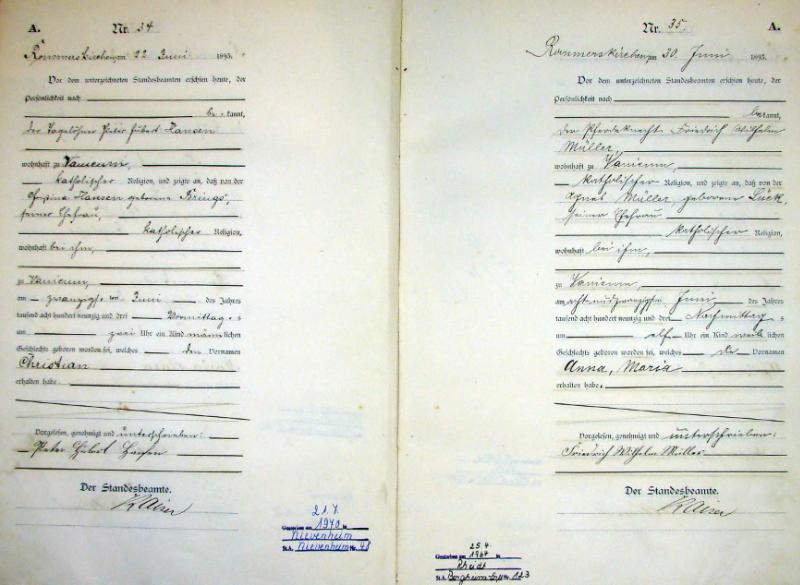 A. Nr. 34
Rommerskirchen am 22. Juni 1893.
Vor dem unterzeichneten Standesbeamten erschien heute, der
Persönlichkeit nach
be kannt,
der Tagelöhner Peter Hubert Hansen
wohnhaft zu Vanicum,
katholischer Religion, und zeigte an, daß von der
Hansen geborene Brings,
seiner Ehefrau,
katholischer Religion,
wohnhaft bei ihm,
zu Vanicum,
am zwanzigsten Juni des Jahres
tausend acht hundert neunzig und drei Vormittags
um zwei Uhr ein Kind männlichen
Geschlechts geboren worden sei, welches den Vornamen
Christian
erhalten habe.
Vorgelesen, genehmigt und unterschrieben:
Peter Hubert Hansen
Der Standesbeamte.
Kaiser
21.7.
Gestorben am 1970 in
Nievenheim
StA. Nievenheim Nr.
Nr. 35. A.
Rommerskirchen am 30. Juni 1893.
Vor dem unterzeichneten Standesbeamten erschien heute, der
Persönlichkeit nach
bekannt,
der Pferdeknecht Friedrich Wilhelm
Müller,
wohnhaft zu Vanicum,
katholischer Religion, und zeigte an, daß von der
Agnes Müller, geborene Lück,
seiner Ehefrau
katholischer Religion,
wohnhaft bei ihm,
zu Vanicum,
am achtundzwanzigsten Juni des Jahres
tausend acht hundert neunzig und drei Nachmittags
um elf Uhr ein Kind weiblichen
Geschlechts geboren worden sei, welches die Vornamen
Anna, Maria
erhalten habe.
Vorgelesen, genehmigt und unterschrieben:
Friedrich Wilhelm Müller
Der Standesbeamte.
Kaiser
25.4.
Gestorben am 1964 in
Rheidt
StA. Bergheim-Erft Nr. 123